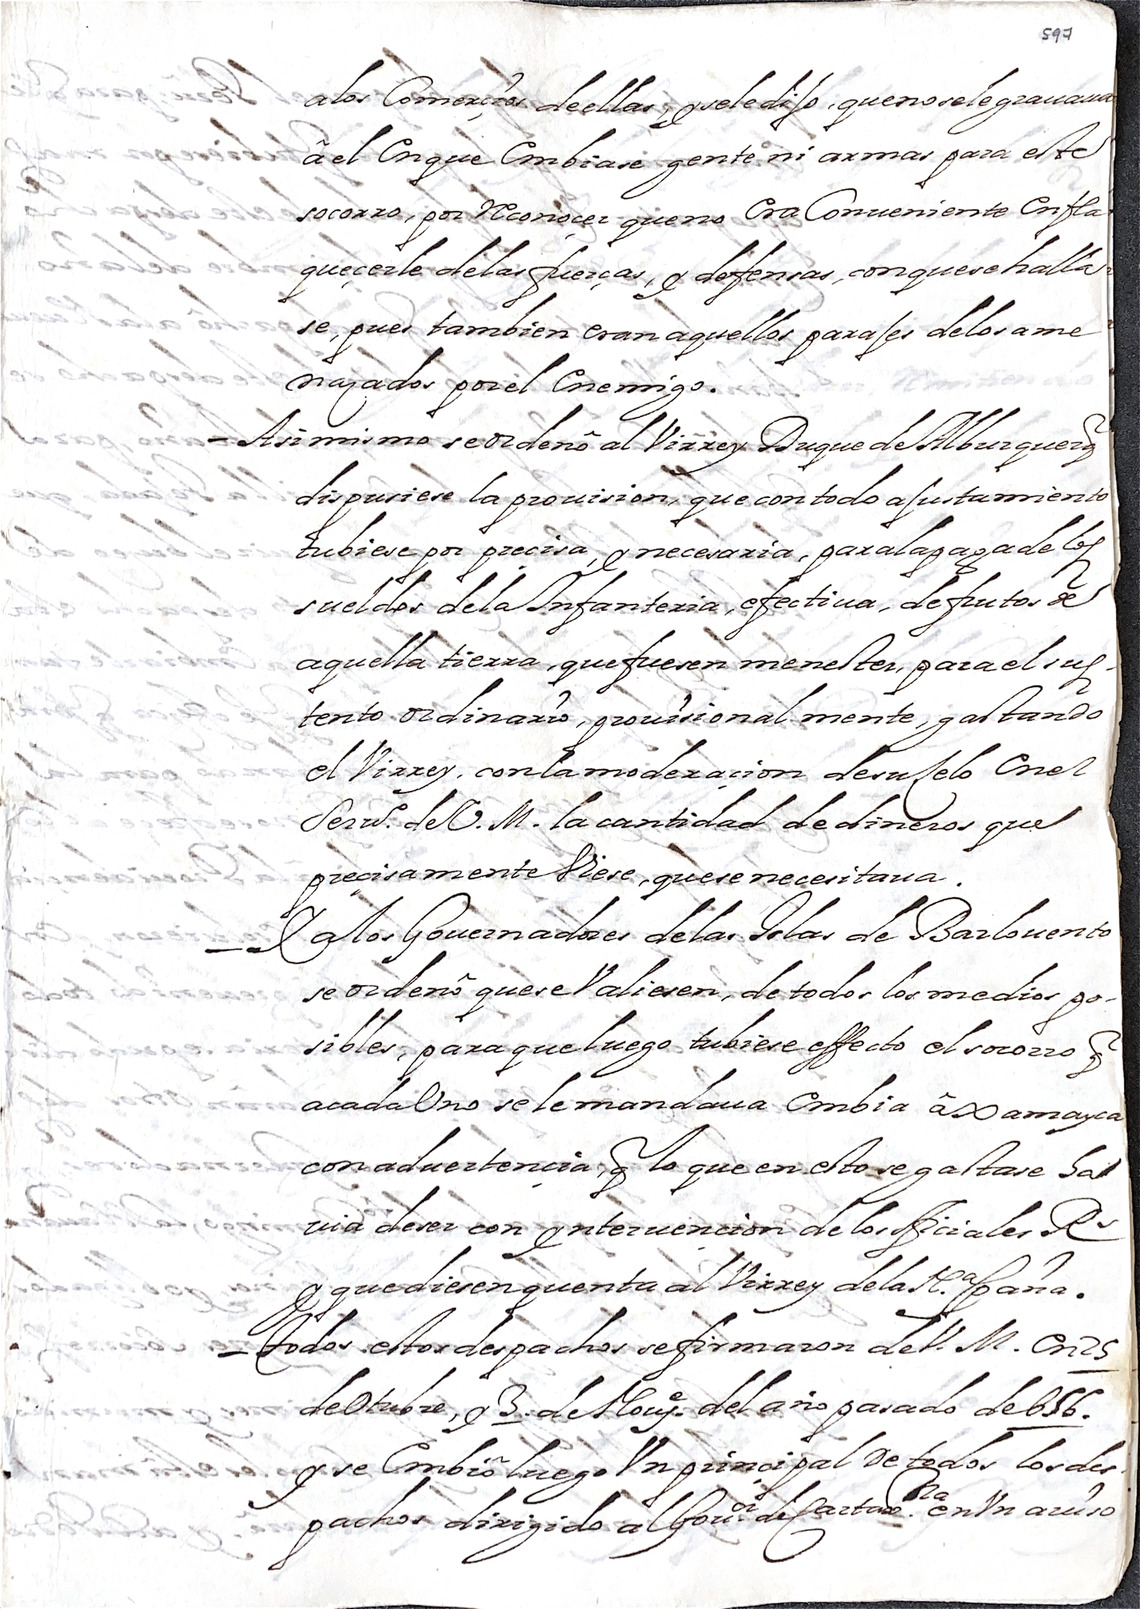 597
a los Comerçios de ellas, y se le dijo, que no se le grauaua
â el En que Embiase gente ni armas para este
socorro, por Reconoçer que no Era Conueniente Enfla
queçerle de las fuerças, y defensas, con que se halla
se, pues tambien eran aquellos parajes de los ame
nazados por el Enemigo.
- Asimismo se ordenô al Virrey Duque de Alburquerq̃
dispusiese la prouision, que con todo ajustamiento
tubiese por preçisa, y necesaria, para la paga de los
sueldos de la Infanteria, efectiua, de frutos de
aquella tierra, que fuesen menester, para el sus-
tento ordinario, prouisional mente, gastando
el Virrey. con la moderaçion de su zelo En el
Seru.º de V. M. la cantidad de dineros que
preçisamente Viese, que se necesitaua.
- Y a los Gouernadores de las Yslas de Barlouento
se ordenô que se Valiesen, de todos los medios po-
sibles, para que luego tubiese effecto el socorro q̃
a cada Uno se le mandaua Embia â Xamayca
con aduertençia, q̃ lo que en esto se gastase ha
uia de ser con yntervencion de los ofiçiales R.s
y que diesen quenta al Virrey de la N.a España.
- Todos estos despachos se firmaron de V. M. En 25
de Otubre, y 3. de Nouy.e del año pasado de 656.
y se Embiô luego Un prinçipal de todos los des
pachos dirigido al Gou.or de Cartax.na en Un auiso